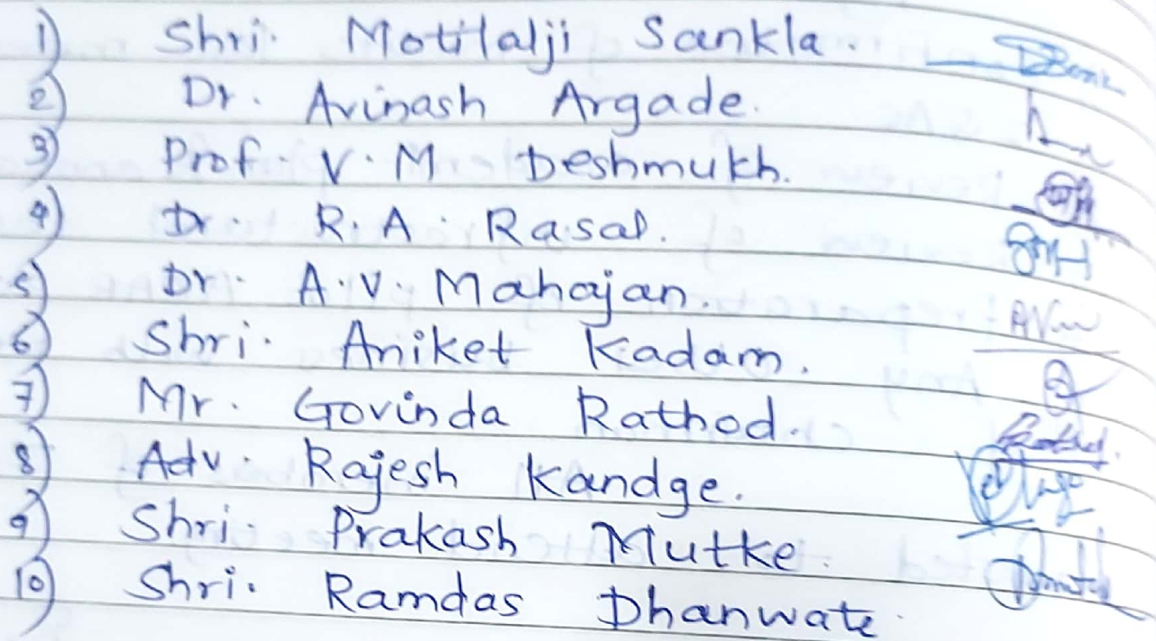 1) Shri. Motilalji Sankla.
2) Dr. Avinash Argade.
3) Prof. V. M. Deshmukh.
4) Dr. R. A. Rasal.
5) Dr. A. V. Mahajan.
6) Shri. Aniket Kadam.
7) Mr. Govinda Rathod.
8) Adv. Rajesh Kandge.
9) Shri. Prakash Mutke.
10) Shri. Ramdas Dhanwate.